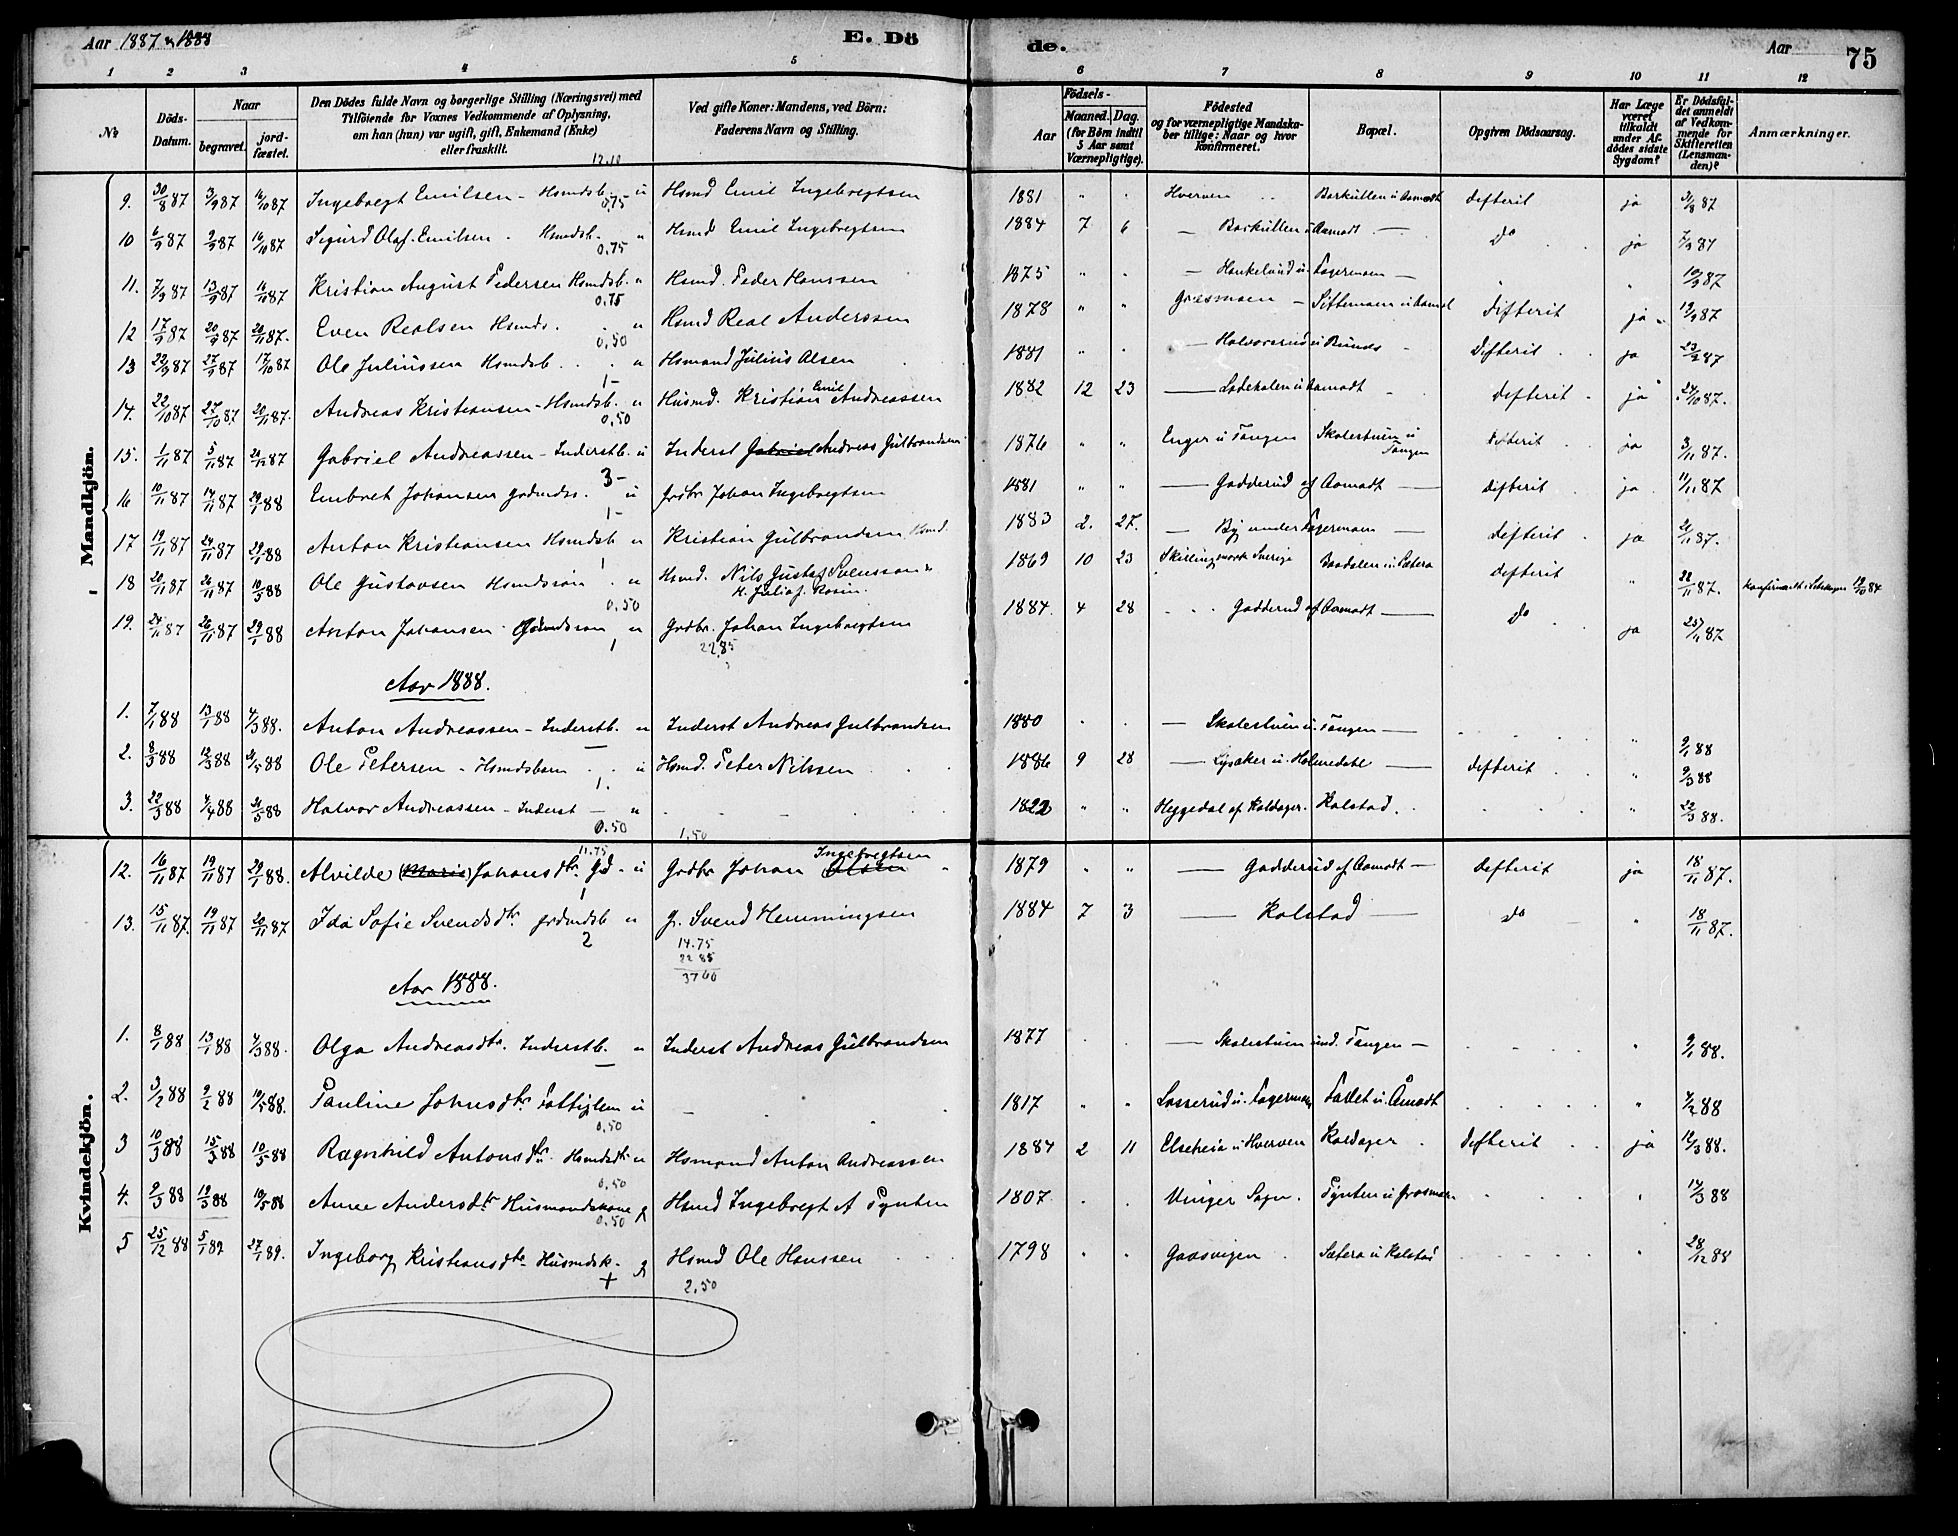 Aar 1887 & 1888 E. Dö de. Aar 75
1 2 3 4 5 6 7 8 9 10 11 12
No
Döds-Datum.
Naar
begravet.
jord-fæstet.
Den Dödes fulde Navn og borgerlige Stilling (Næringsvei) med
Tilföiende for Voxnes Vedkommende af Oplysning,
om han (hun) var ugift, gift, Enkemand (Enke)
eller fraskilt.
12.10
Ved gifte Koner: Mandens, ved Börn:
Faderens Navn og Stilling.
Födsels-
Aar
Maaned. Dag.
(for Börn indtil
5 Aar samt
Værnepligtige).
Födested
og for værnepligtige Mandska-
ber tillige: Naar og hvor
konfirmeret.
Bopæl.
Opgiven Dödsaarsag.
Har Læge
været
tilkaldt
under Af-
dödes sidste
Sygdom?
Er Dödsfal-
det anmeldt
af Vedkom-
mende for
Skifteretten
(Lensman-
den)?
Anmærkninger.
Mandkjön.
9. 30/8 87 3/9 87 16/10 87 Ingebregt Emilsen - Hsmdsb. u Hsmd Emil Ingebregtsen 1881 " " Hverven Barkullen u Aamodt Defterit ja 31/8 87
0.75
10 6/9 87 9/9 87 16/10 87 Sigurd Olaf Emilsen - Hsmdsb. " Hsmd Emil Ingebregtsen 1884 7 6 — Barkullen u Aamodt — Do ja 7/9 87
0.75
11. 7/9 87 13/9 87 Kristian August Pedersen Hsmdsb. u Hsmd. Peder Hanssen 1875 " " — Hankelund u. Fagermoen — " " 10/9 87
0.75
12 17/9 87 20/9 87 20/11 87. Even Realsen Hsmds. u Hsmd Real Anderssen 1878 " " Grasmoen — Difterit ja 19/9 87
0,50
13 22/9 87 27/9 87 17/10 87 Ole Juliussen Hsmdsb. u Hsmand Julius Olsen 1881 " " — Halvorsrud u Runds - Defterit ja 23/9 87
1-
14. 22/10 87 27/10 87 20/11 87. Andreas Kristiansen - Hsmdsb. u Husmd. Kristian Emil Andreassen 1882 12 23 — Ladekalen u Aamodt - Defterit ja 24/10 87.
0,50
15. 1/11 87 5/11 87 Gabriel Andreassen - Inderstb. u Inderst Gabriel Andreas Gulbrandsen 1876 " " Enger u Tangen Skolestuen u Tangen Difterit ja 3/11 87.
3-
16 10/11 87 14/11 87 29/1 88 Embret Johansen Grdmdss. u Grdbr Johan Ingebregtsen 1881 " " — Gadderud af Aamodt — Difterit ja 11/11 87
1-
17 19/11 87 24/11 87 29/1 88 Anton Kristiansen Hsmdsb u Kristian Gulbrandsen Hsmd. 1883 2. 27. — Bÿ under Fagermoen — Defterit ja 21/11 87.
1
18 20/11 87 26/11 87 10/3 88 Ole Gustavsen Hsmdssön u Hsmd. Nils Gustaf Svensson & H. Juliaf. Rosin 1869 10 23 Skillingmark Sverige Baadalen u. Sætera Defterit " 22/11 87.
0,50
19. 24/11 87 26/11 87 29/1 88 Anton Johansen Gdmdsson u Grdbr. Johan Ingebregtsen 1884. 4 28 Gadderud af Aamodt — Do ja 25/11 87
1 22,85
Aar 1888.
1. 7/1 88 13/1 88 4/3 88. Anton Andreassen - Inderstb. u Inderst Andreas Gulbrandsen 1880 — Skolestuen u. Tangen — " 9/1 88
—
2. 8/3 88 12/3 88 21/5 88 Ole Petersen - Hsmdsbarn u Hsmd. Peter Nilssen 1886 9 28 — Lysaker u. Holmedahl — Defterit " 9/3 88
1.
3. 22/3 88 4/4 88 21/5 88 Halvor Andreassen - Inderst — " 1822 " " Heggedal af Kaldager. Kalstad " 22/3 88.
0.50 1,50
Kvindekjön.
11.75
12. 16/11 87 19/11 87 29/1 88. Alvilde (Marie) Johansdtr Gd - u Grdbr Johan Ingebregtsen Olsen 1879 " " — Gadderud af Aamodt — Defterit ja 18/11 87.
1
13. 15/11 87. 19/11 87 20/11 87 Ida Sofie Svendsdtr. Grdmdsb u G. Svend Hemmingsen 1884 7 3 — Kolstad — Do " 18/11 87.
2
14.75
22 85
3760
Aar 1888.
1. 8/1 88 13/1 88 4/3 88. Olga Andreasdtr. Inderstb. u Inderst Andreas Gulbrandsen 1877 — Skolestuen und. Tangen — " 9/1 88.
—
2. 3/2 88 9/2 88 10/5 88. Pauline Johnsdtr Fattiglem u — 1817 " " Lasserud u. Fagermoen Fallet u. Åmodt " 4/2 88
0,50
3 10/3 88 15/3 88 10/5 88 Ragnhild Antonsdtr. Hsmdsdtr u Hsmand Anton Andreassen 1884 2 11 Elseheia u Hverven Kaldager Difterit ja 12/3 88.
0,50
4. 9/3 88 19/3 88 10/5 88 Anne Andersdtr Husmandskone g Hsmd Ingebregt A Pynten 1807. Vinger Sogn. Pynten u Grasmoen " 14/3 88
0.50
5 25/12 88 5/1 89 27/1 89. Ingeborg Kristiansdtr Husmdsk. g Hsmd Ole Hanssen 1798 " " Gaasvigen Sætera u Kolstad " 28/12 88
+ 2,50